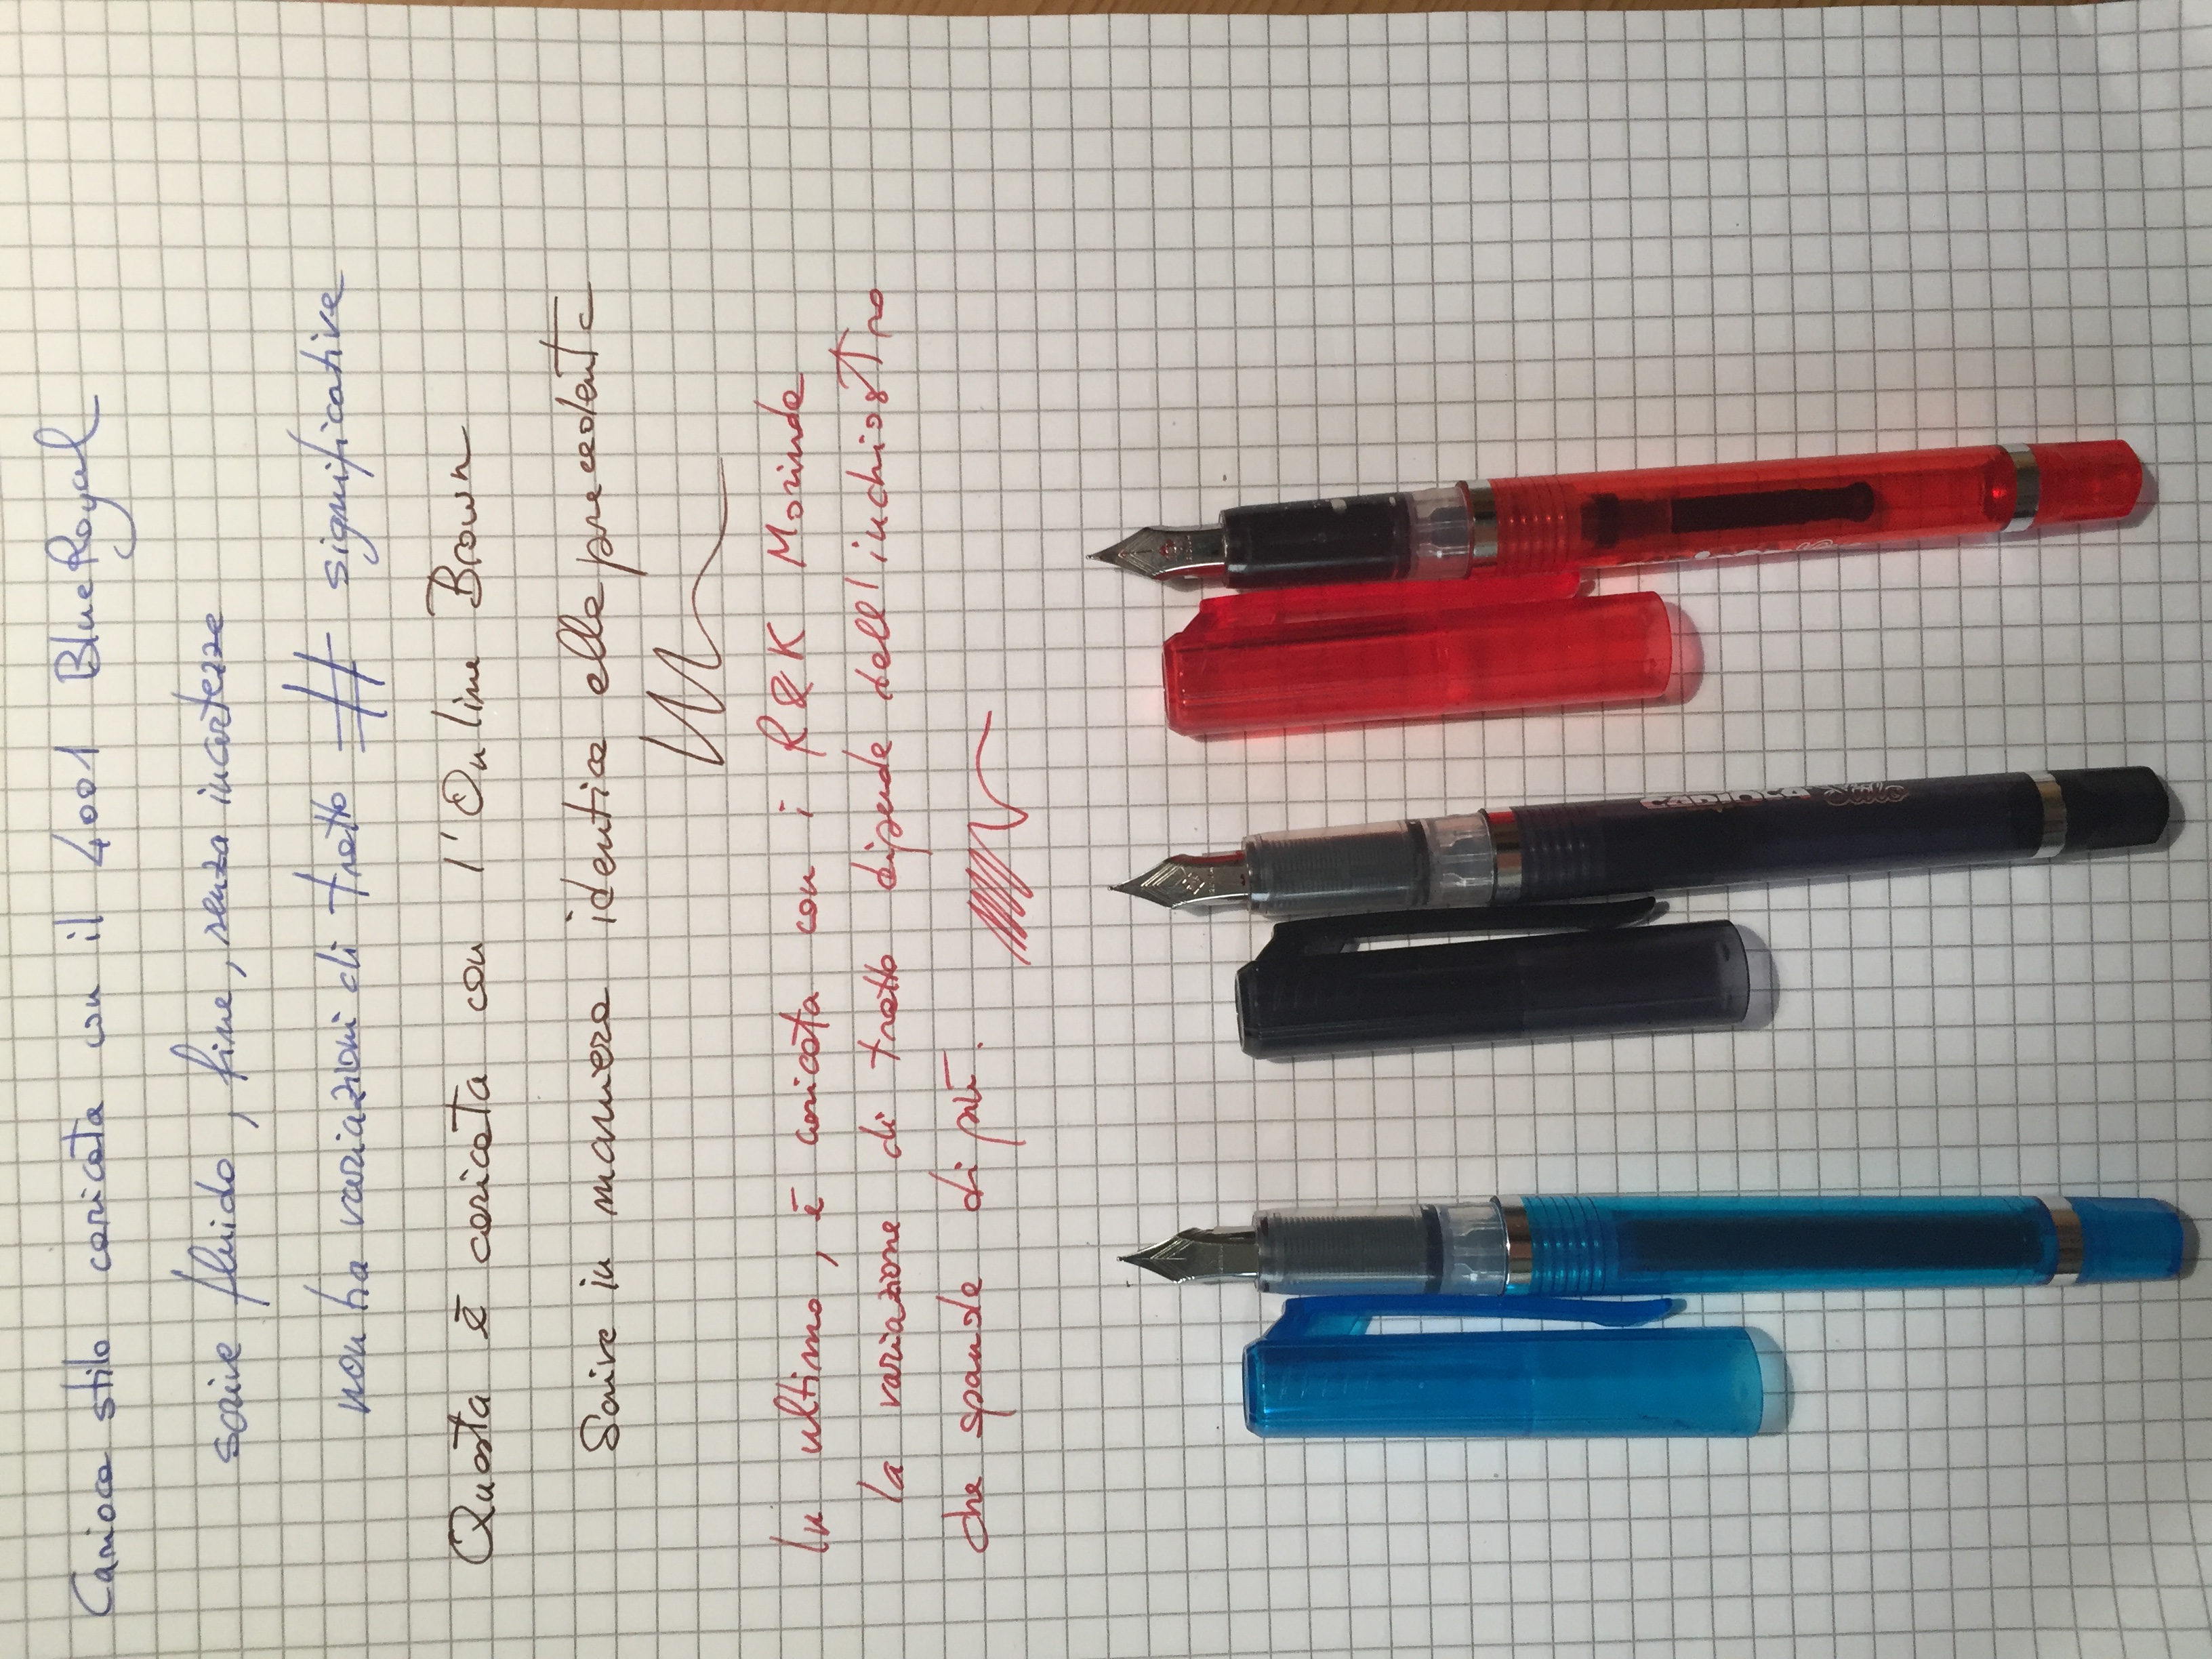 Carioca stilo caricata con il 4001 Blue Royal
scrive fluido, fine, senza incertezze
non ha variazioni di tratto # significative
Questa è caricata con l'Online Brown
Scrive in maniera identica alla precedente
In ultimo, è caricata con i R&K Morinda
la variazione di tratto dipende dall'inchiostro
che spande di più.
CARIOCA Stilo